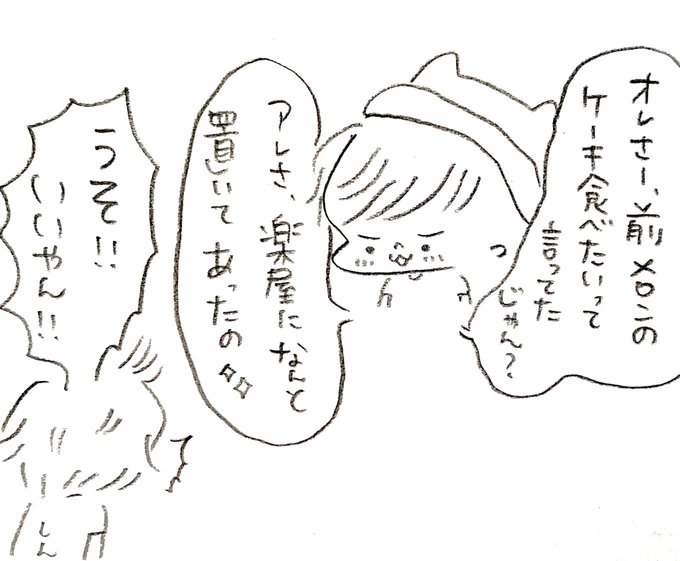 オレさー、前メロンの
ケーキ食べたいって
言ってた
じゃん？
アレさ、楽屋になんと
置いてあったの
うそ!!
いいやん!!
しん